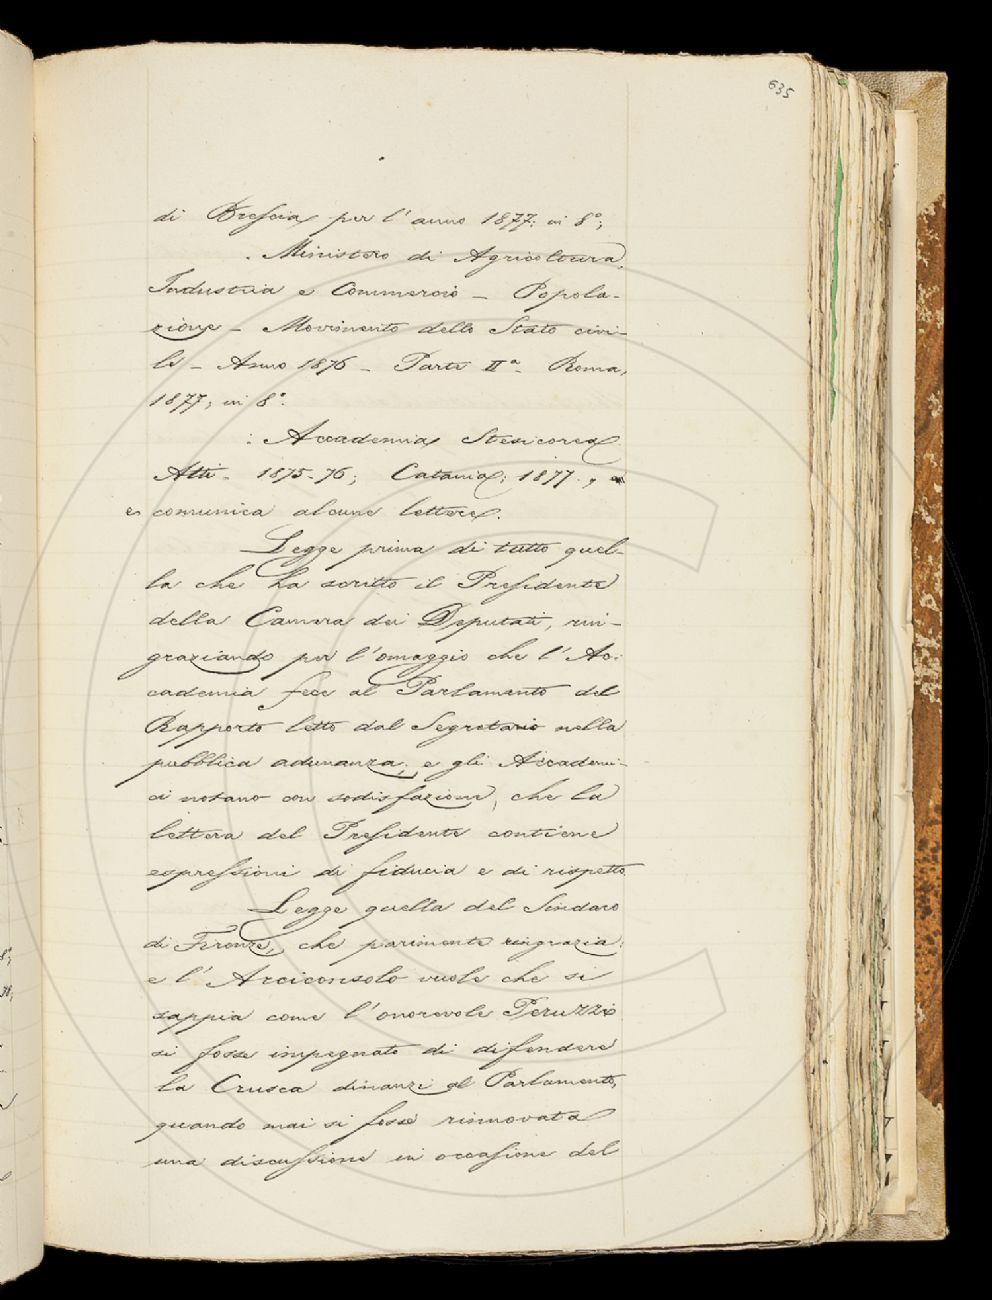 635
di Brescia per l'anno 1877: in 8°;
. Ministero di Agricoltura,
Industria e Commercio - Popola-
zione - Movimento dello Stato civi-
le - Anno 1876 - Parte IIa - Roma,
1877; in 8°.
: Accademia Stesicorea
Atti - 1875-76; Catania; 1877.,
e comunica alcune lettere.
Legge prima di tutto quel-
la che ha scritto il Presidente
della Camera dei Deputati, rin-
graziando per l'omaggio che l'Ac-
cademia fece al Parlamento del
Rapporto letto dal Segretario nella
pubblica adunanza; e gli Accademi-
ci notano con sodisfazione, che la
lettera del Presidente contiene
espressioni di fiducia e di rispetto
Legge quella del Sindaco
di Firenze, che parimente ringrazia:
e l'Arciconsolo vuole che si
sappia come l'onorevole Peruzzi
si fosse impegnato di difendere
la Crusca dinanzi al Parlamento,
quando mai si fosse rinnovata
una discussione in occasione del